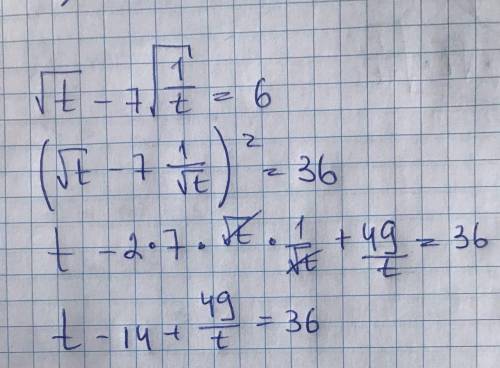 √t - 7√(1/t) = 6
(√t - 7 1/√t)² = 36
t - 2 · 7 · √t · 1/√t + 49/t = 36
t - 14 + 49/t = 36